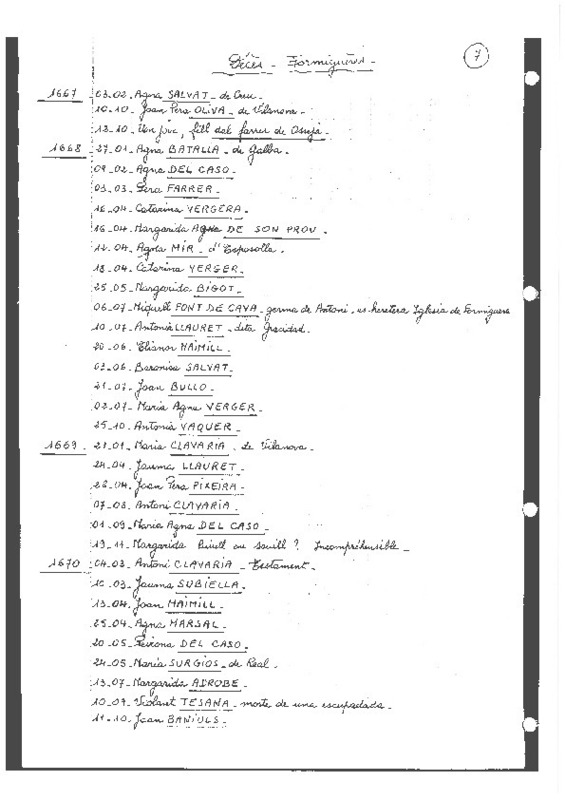 Décès - Formiguères - 7
1667 - 03.02. Agna SALVAT - de Creu -
20.10 - Joan Pera OLIVA - de Vilanova -
12.10 - Un fill del farrer de Osseja -
1668 - 27.01 - Agna BATALLA - de Galba.
09.02 - Agna DEL CASO -
03.03 - Pera FARRER -
16.04 - Catarina VERGERA -
16.04 - Margarida Agna DE SON PROU -
12.04 - Agna MIR - d'Esposolla -
18.04 - Catarina VERGER -
25.05 - Margarida BIGOT -
06.07 - Miquell FONT DE CAVA - germa de Antoni, heretera Iglesia de Formiguera
10.07 - Antonia LLAURET - dita
20.06 - Elianor MAIMILL -
03.06 - SALVAT -
21.07 - Joan BULLO -
02.07 - Maria Agna VERGER -
25.10 - Antonia VAQUER -
1669 - 21.01 - Maria CLAVARIA - de Vilanova -
24.04 - Jauma LLAURET -
26.04 - Joan Pera PIXEIRA -
07.08 - Antoni CLAVARIA -
01.09 - Maria Agna DEL CASO -
19.11 - Margarida ou ? Incompréhensible -
1670 - 04.03 - Antoni CLAVARIA - Testament -
10.03 - Jauma SUBIELLA -
13.04 - Joan MAIMILL -
25.04 - Agna MARSAL -
20.05 - Peirona DEL CASO -
24.05 - Maria SURGIOS - de Real -
13.07 - Margarida AIROBE -
10.07 - Violant TESANA - morte de una escupadada -
11.10 - Joan BANIULS -